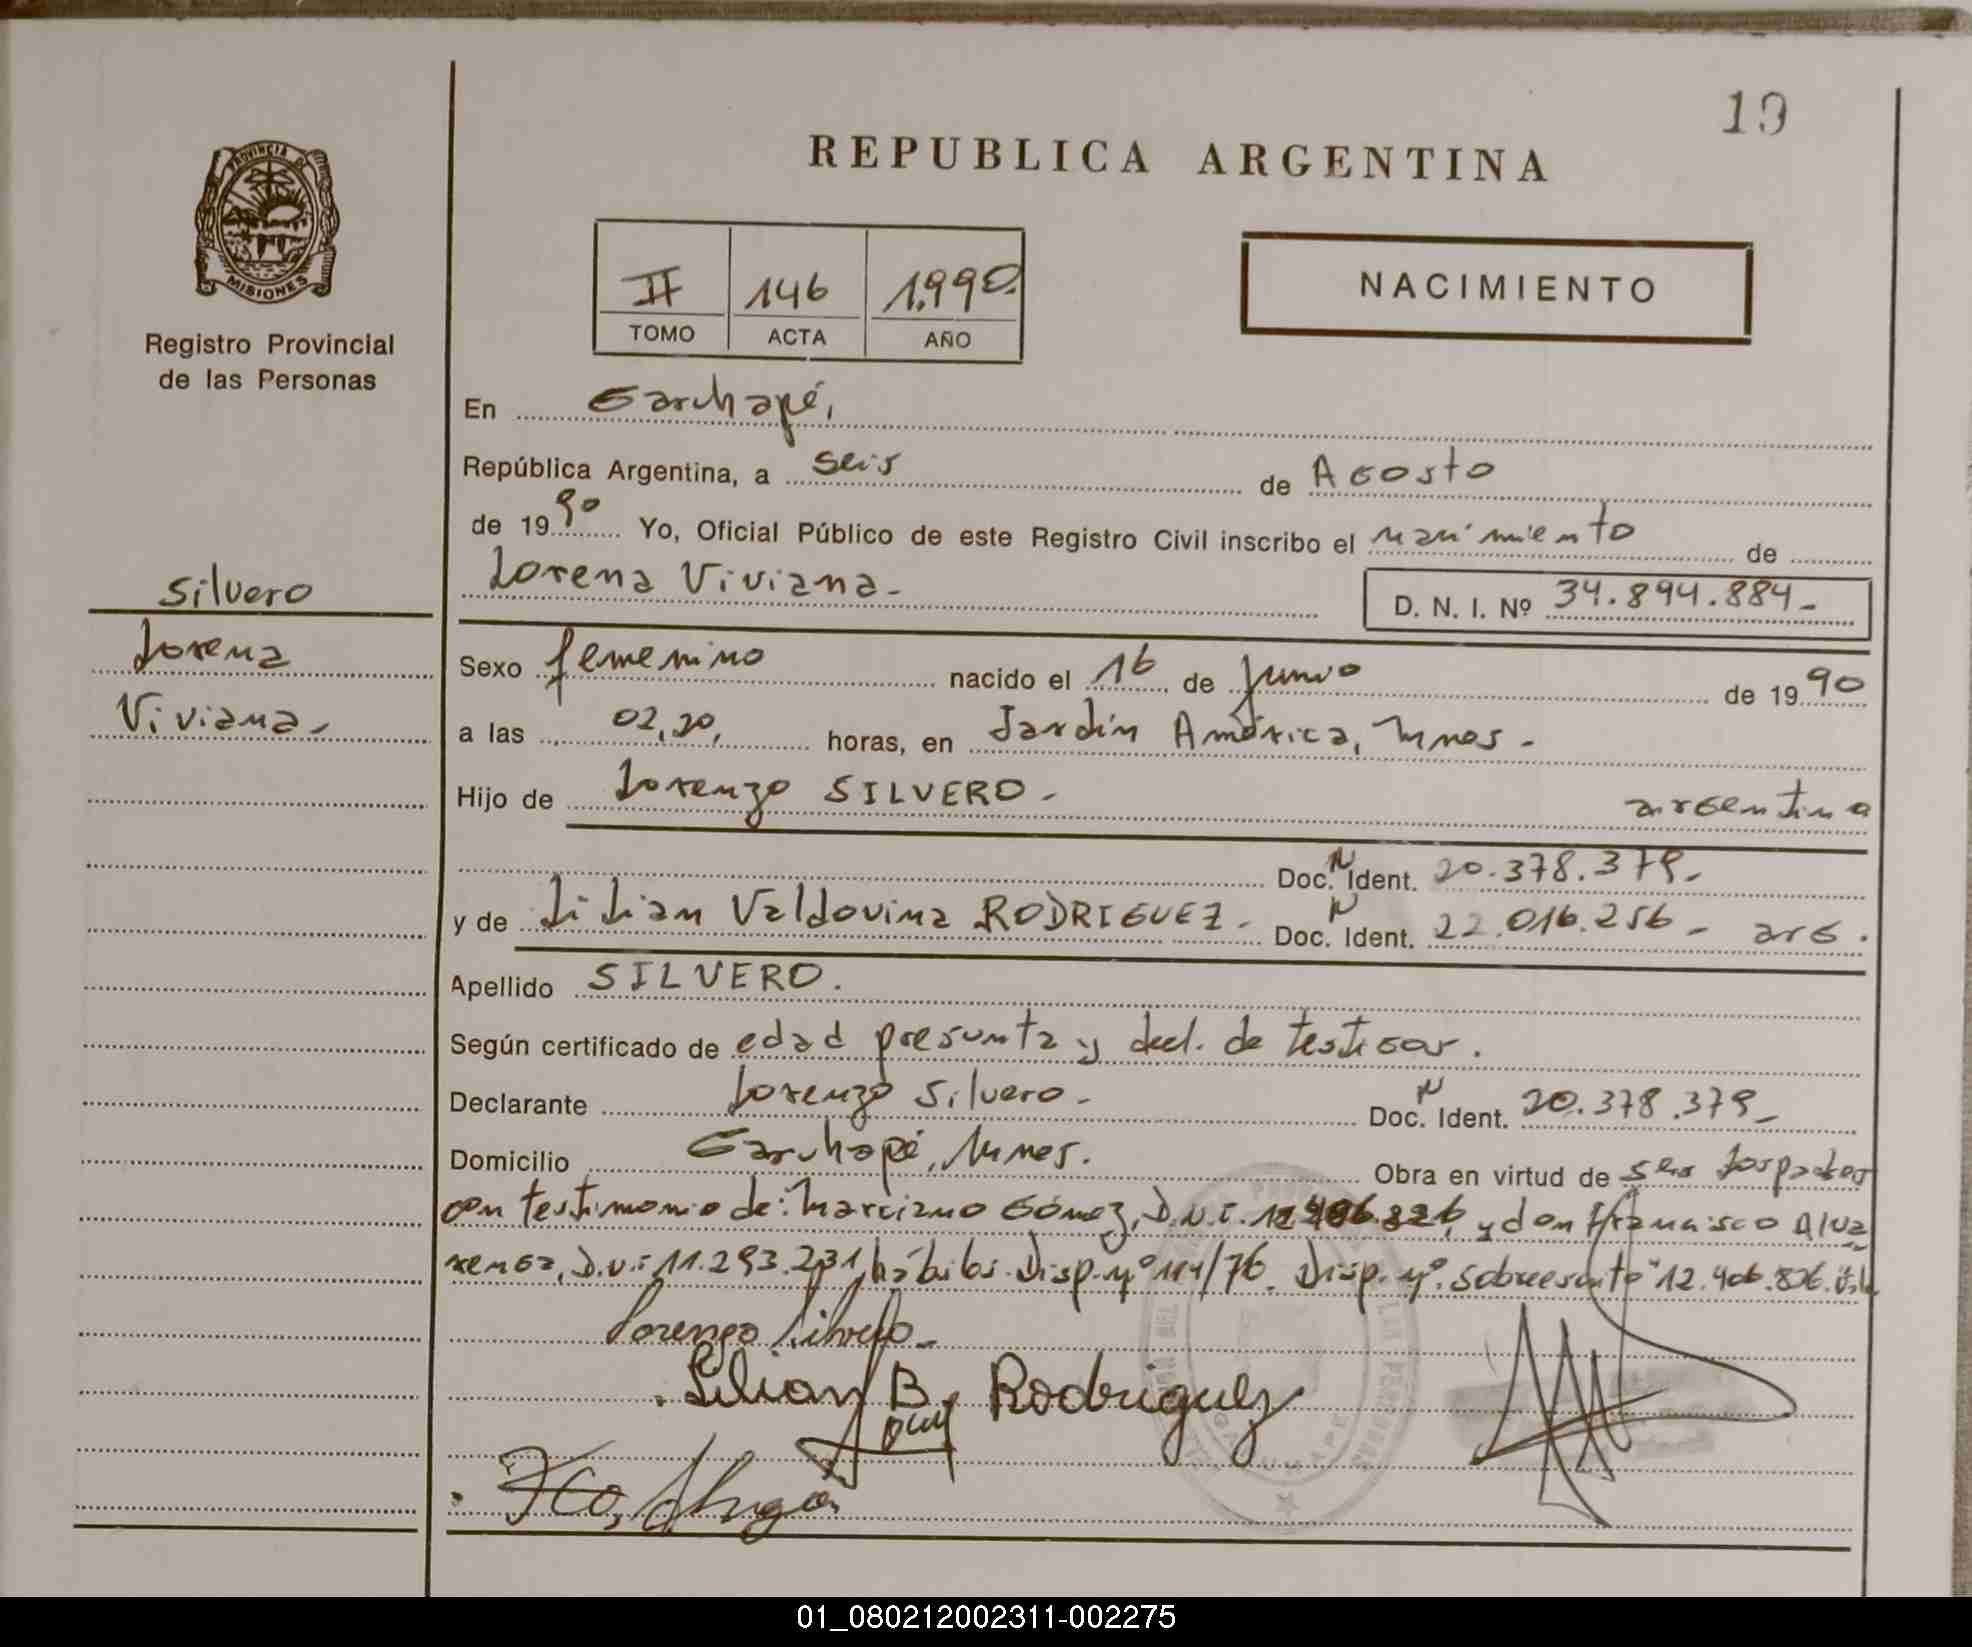 19
REPUBLICA ARGENTINA
PROVINCIA DE
MISIONES
Registro Provincial
de las Personas
II 146 1.990.
TOMO ACTA AÑO
NACIMIENTO
En Garuhapé,
República Argentina, a seis de Agosto
de 1990 Yo, Oficial Público de este Registro Civil inscribo el nacimiento de
Lorena Viviana.
D. N. I. Nº 34.894.884-
Silvero
Lorena
Viviana.
Sexo femenino nacido el 16 de Junio de 1990
a las 02,20, horas, en Jardín América, Mnes.
Hijo de Lorenzo SILVERO. argentina
Doc. N Ident. 20.378.379.
y de Lilian Valdovina RODRIGUEZ. Doc. N Ident. 22.016.256 - arg.
Apellido SILVERO.
Según certificado de edad presunta y decl. de testigos.
Declarante Lorenzo Silvero. Doc. N Ident. 20.378.379-
Domicilio Garuhapé, Mnes. Obra en virtud de ser los padres
con testimonio de: Marciano Gómez, D.N.I. y don Francisco Alva
renga, D.N.I 11.293.231, hábiles. Disp. nº 114/76. Disp. nº. Sobreescrito "12.406.826.
Lorenzo Silvero
Lilian B. Rodriguez
GARUHAPE
01_080212002311-002275